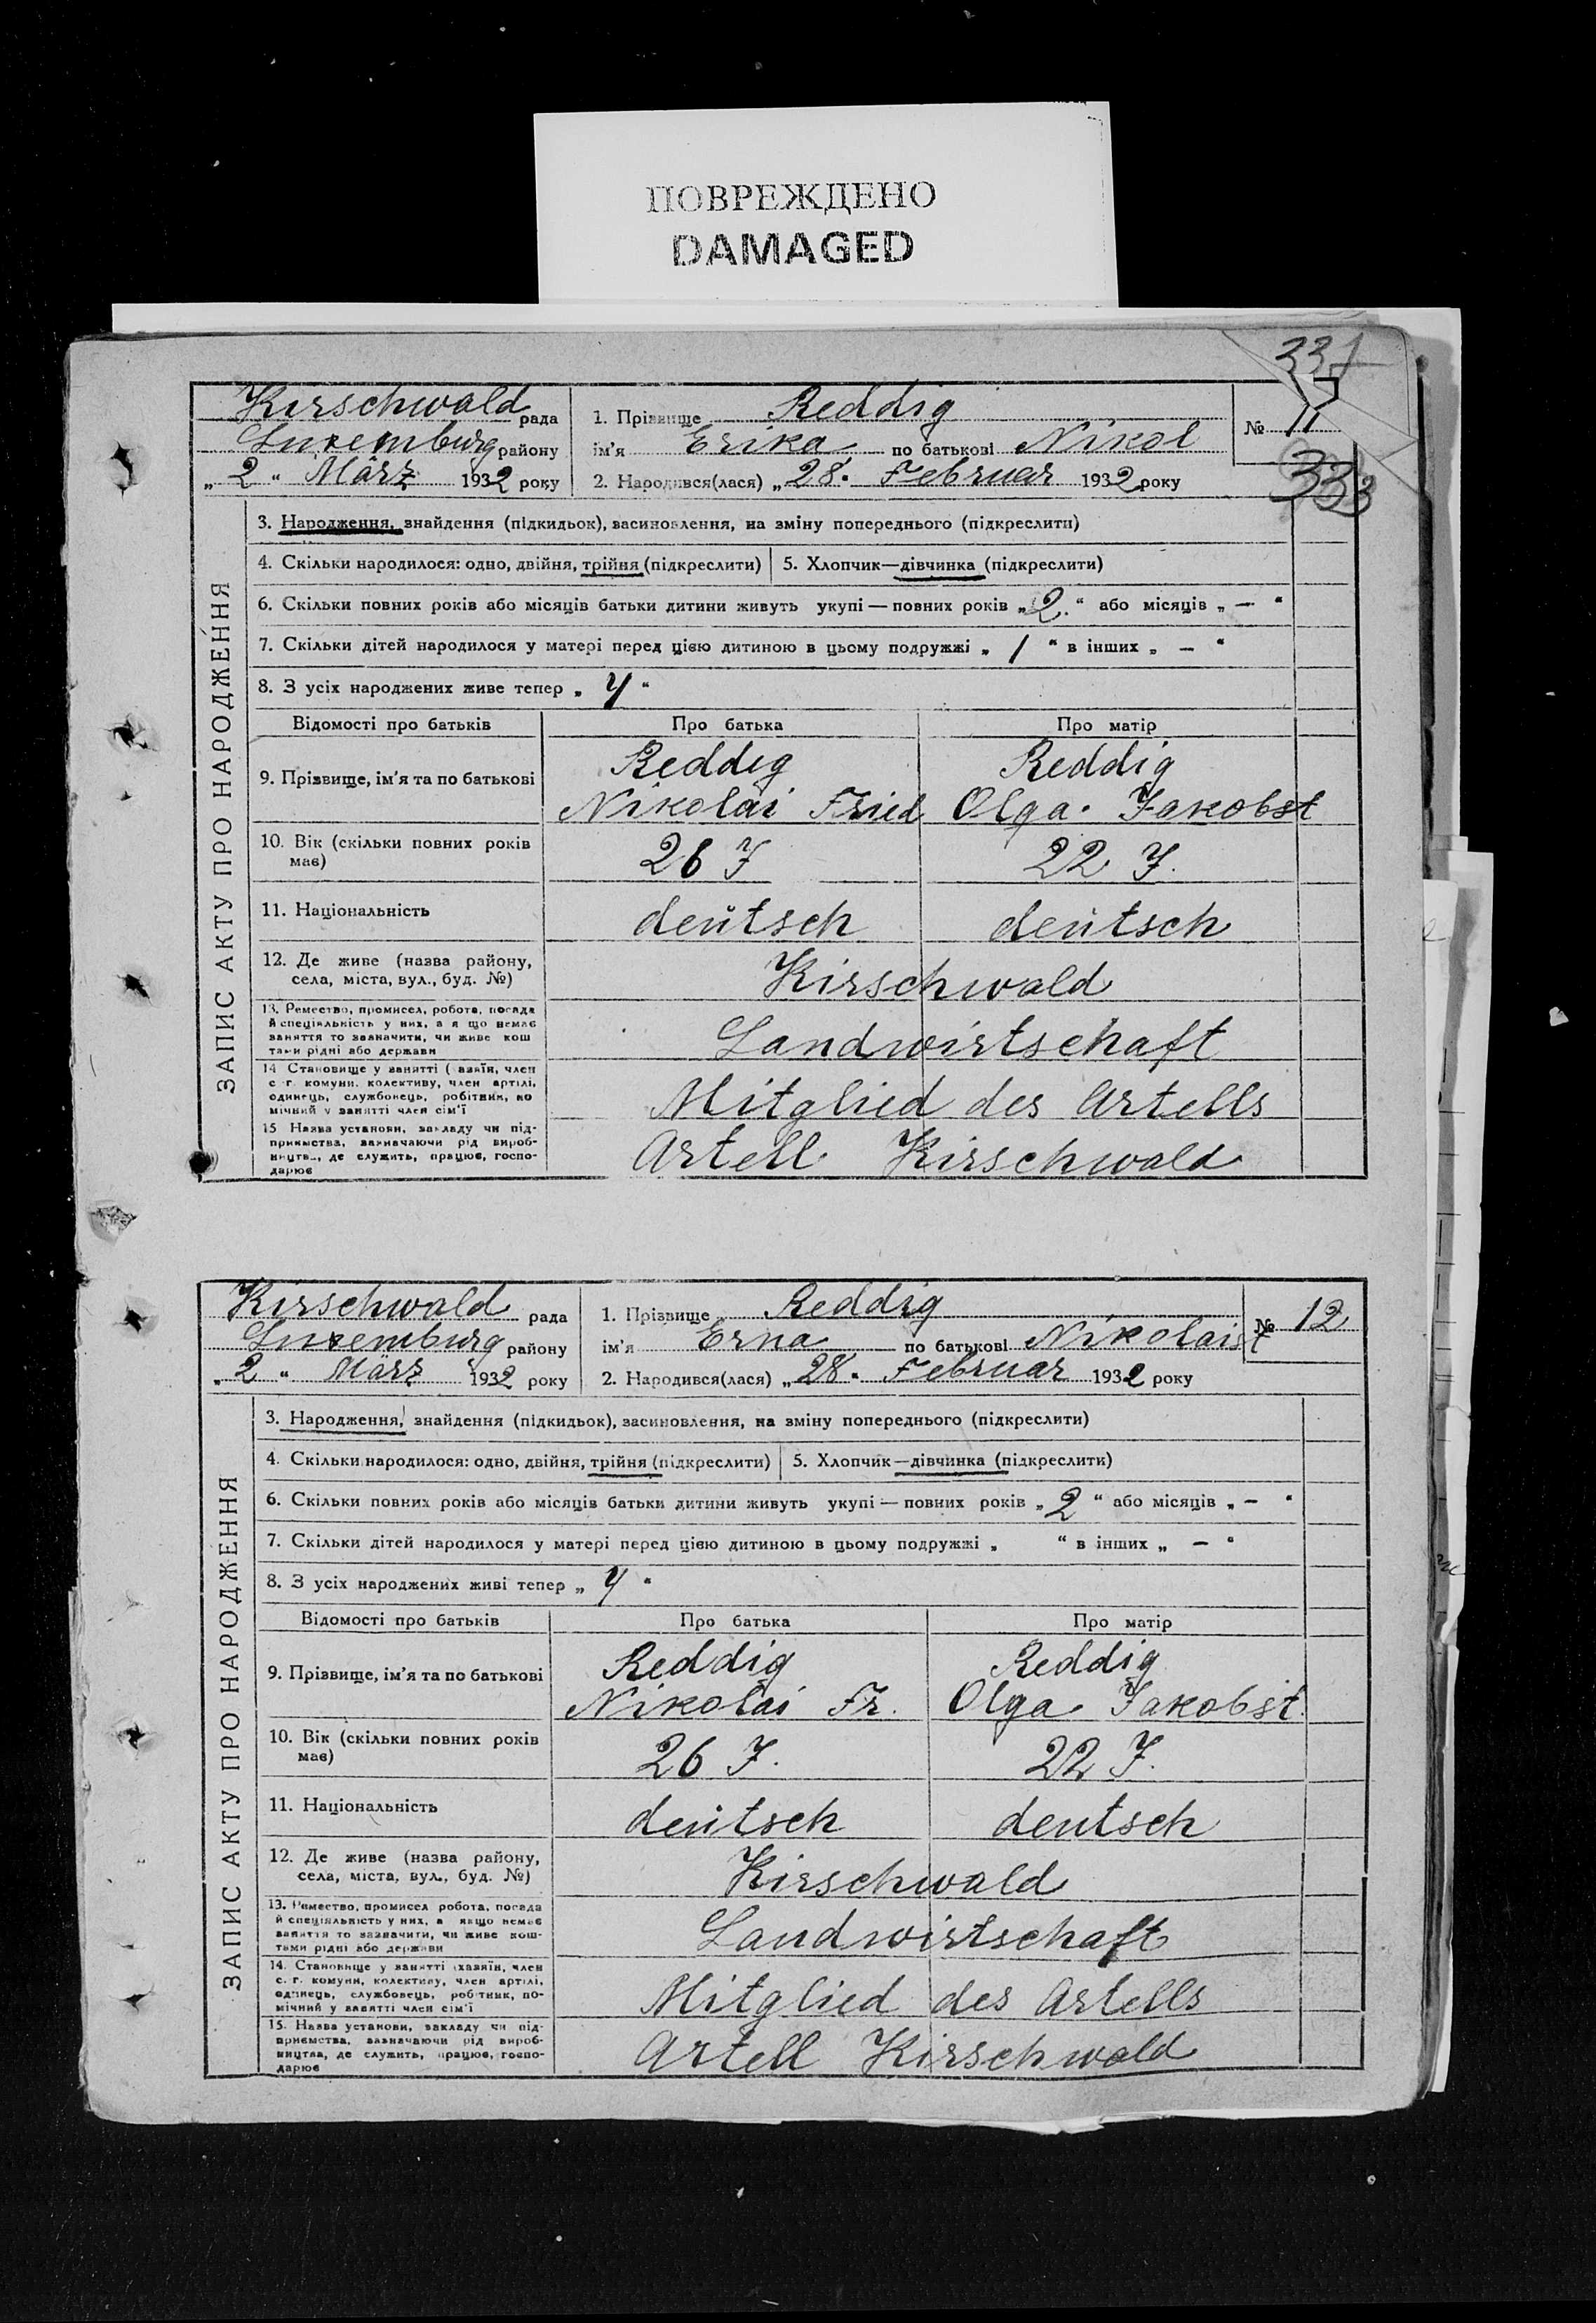 ПОВРЕЖДЕНО
DAMAGED
331
333
ЗАПИС АКТУ ПРО НАРОДЖЕННЯ
Kirschwald рада
Luxemburg району
„ 2 “ März 1932 року
1. Прізвище Reddig
ім'я Erika по батькові Nikol
2. Народився(лася) „28. Februar 1932 року
№ 11
3. Народження, знайдення (підкидьок), засиновлення, на зміну попереднього (підкреслити)
4. Скільки народилося: одно, двійня, трійня (підкреслити) 5. Хлопчик—дівчинка (підкреслити)
6. Скільки повних років або місяців батьки дитини живуть укупі — повних років „2.“ або місяців „ — “
7. Скільки дітей народилося у матері перед цією дитиною в цьому подружжі „ 1 “ в інших „ — “
8. З усіх народжених живе тепер „ 4 “
Відомості про батьків Про батька Про матір
9. Прізвище, ім'я та по батькові Reddig Reddig
Nikolai Fried Olga. Jakobst
10. Вік (скільки повних років
має) 26 J 22 J.
11. Національність deutsch deutsch
12. Де живе (назва району,
села, міста, вул., буд. №) Kirschwald
13. Ремество, промисел, робота, посада
й спеціяльність у них, а я що немає
заняття то зазначити, чи живе кош
тами рідні або держави Landwirtschaft
14 Становище у занятті ( азяїн, член
с г. комуни. колективу, член артілі,
одинець, службовець, робітник, по
мічний у занятті член сім'ї Mitglied des Artells
15 Назва установи, закладу чи під-
приємства, зазначаючи рід вироб-
ництв., де служить, працює, госпо-
дарює Artell Kirschwald
ЗАПИС АКТУ ПРО НАРОДЖЕННЯ
Kirschwald рада
Luxemburg району
„ 2 “ März 1932 року
1. Прізвище Reddig
ім'я Erna по батькові Nikolaist
2. Народився(лася) „28. Februar 1932 року
№ 12
3. Народження, знайдення (підкидьок), засиновлення, на зміну попереднього (підкреслити)
4. Скільки народилося: одно, двійня, трійня (підкреслити) 5. Хлопчик—дівчинка (підкреслити)
6. Скільки повних років або місяців батьки дитини живуть укупі — повних років „ 2 “ або місяців „ — “
7. Скільки дітей народилося у матері перед цією дитиною в цьому подружжі „ “ в інших „ — “
8. З усіх народжених живі тепер „ 4 “
Відомості про батьків Про батька Про матір
9. Прізвище, ім'я та по батькові Reddig Reddig
Nikolai Fr. Olga Jakobst.
10. Вік (скільки повних років
має) 26 J. 22 J.
11. Національність deutsch deutsch
12. Де живе (назва району,
села, міста, вул., буд. №) Kirschwald
13. Ремество, промисел робота, посада
й спеціяльність у них, а якщо немає
заняття то зазначити, чи живе кош-
тами рідні або держави Landwirtschaft
14. Становище у занятті (хазяїн, член
с. г. комуни, колективу, член артілі,
одинець, службовець, робітник, по-
мічний у занятті член сім'ї Mitglied des Artells
15. Назва установи, закладу чи під-
приємства, зазначаючи рід вироб-
ництва, де служить, працює, госпо-
дарює Artell Kirschwald